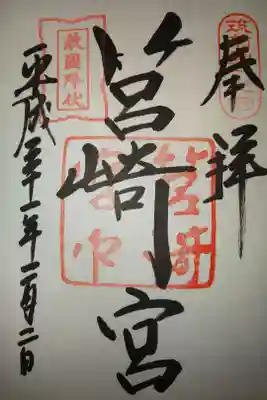 奉拝
筥崎宮
筥崎宮印
敵國降伏
平成三十一年一月二日